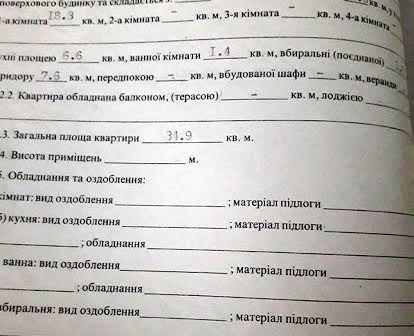 поверхового будинку та складається з
-а кімната 18.3 кв. м, 2-а кімната – кв. м, 3-я кімната – кв. м, 4-а кімната
ухні площею 6.6 кв. м, ванної кімнати 1.4 кв. м, вбиральні (поєднаної)
ридору 7.6 кв. м, передпокою – кв. м, вбудованої шафи – кв. м, веранди
2.2. Квартира обладнана балконом, (терасою) – кв. м, лоджією
.3. Загальна площа квартири 34.9 кв. м.
4. Висота приміщень ____ м.
. Обладнання та оздоблення:
кімнат: вид оздоблення ____ ; матеріал підлоги
б) кухня: вид оздоблення ____ ; матеріал підлоги
____ ; обладнання
ванна: вид оздоблення ____ ; матеріал підлоги
____ ; обладнання
вбиральня: вид оздоблення ____ ; матеріал підлоги